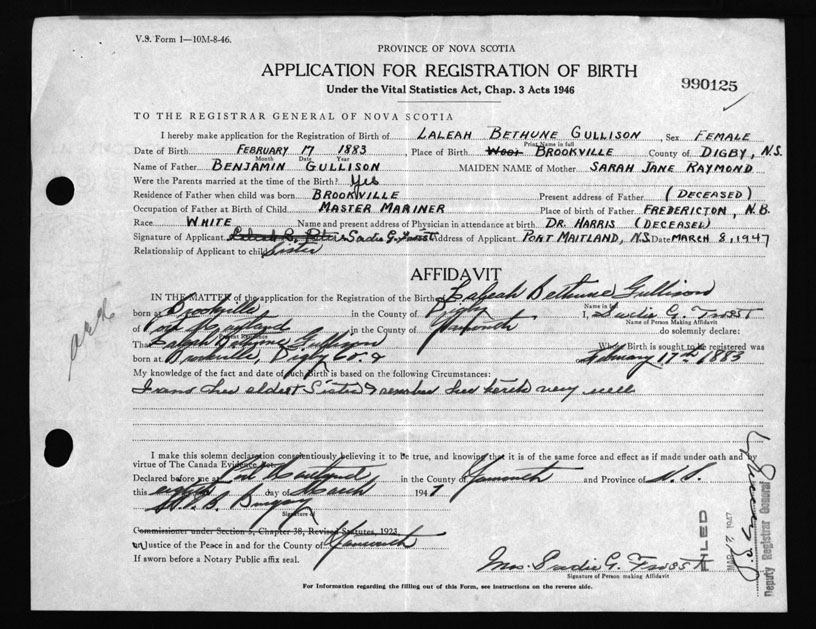 V.S. Form 1—10M-8-46.
PROVINCE OF NOVA SCOTIA
APPLICATION FOR REGISTRATION OF BIRTH
990125
Under the Vital Statistics Act, Chap. 3 Acts 1946
TO THE REGISTRAR GENERAL OF NOVA SCOTIA
I hereby make application for the Registration of Birth of LALEAH BETHUNE GULLISON, Sex FEMALE
Print Name in full
Date of Birth FEBRUARY 17 1883, Place of Birth BROOKVILLE County of DIGBY, N.S.
Month Date Year
Name of Father BENJAMIN GULLISON MAIDEN NAME of Mother SARAH JANE RAYMOND
Were the Parents married at the time of the Birth? Yes
Residence of Father when child was born BROOKVILLE Present address of Father (DECEASED)
Occupation of Father at Birth of Child MASTER MARINER Place of birth of Father FREDERICTON, N.B.
Race WHITE Name and present address of Physician in attendance at birth DR. HARRIS (DECEASED)
Signature of Applicant Sadie G. Frost Address of Applicant PORT MAITLAND, N.S. Date MARCH 8, 1947
Relationship of Applicant to child Sister
AFFIDAVIT
IN THE MATTER of the application for the Registration of the Birth of Laleah Bethune Gullison
Name in full
born at Brookville in the County of Digby I, Sadie G. Frost
Name of Person Making Affidavit
of Port Maitland in the County of Yarmouth do solemnly declare:
Present Residence
That Laleah Bethune Gullison Whose Birth is sought to be registered was
born at Brookville, Digby Co. on February 17th 1883
My knowledge of the fact and date of such Birth is based on the following Circumstances:
I was her eldest Sister & remember her birth very well
I make this solemn declaration conscientiously believing it to be true, and knowing that it is of the same force and effect as if made under oath and by
virtue of The Canada Evidence Act.
Declared before me at Port Maitland in the County of Yarmouth and Province of N.S.
this eighth day of March 1947
Signature of
Commissioner under Section 5, Chapter 38, Revised Statutes, 1923
or Justice of the Peace in and for the County of Yarmouth
If sworn before a Notary Public affix seal.
Mrs. Sadie G. Frost
Signature of Person making Affidavit
For Information regarding the filling out of this Form, see instructions on the reverse side.
FILED
Deputy Registrar General